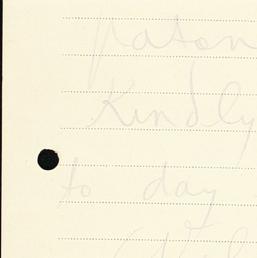 Paton
Kindly
to day